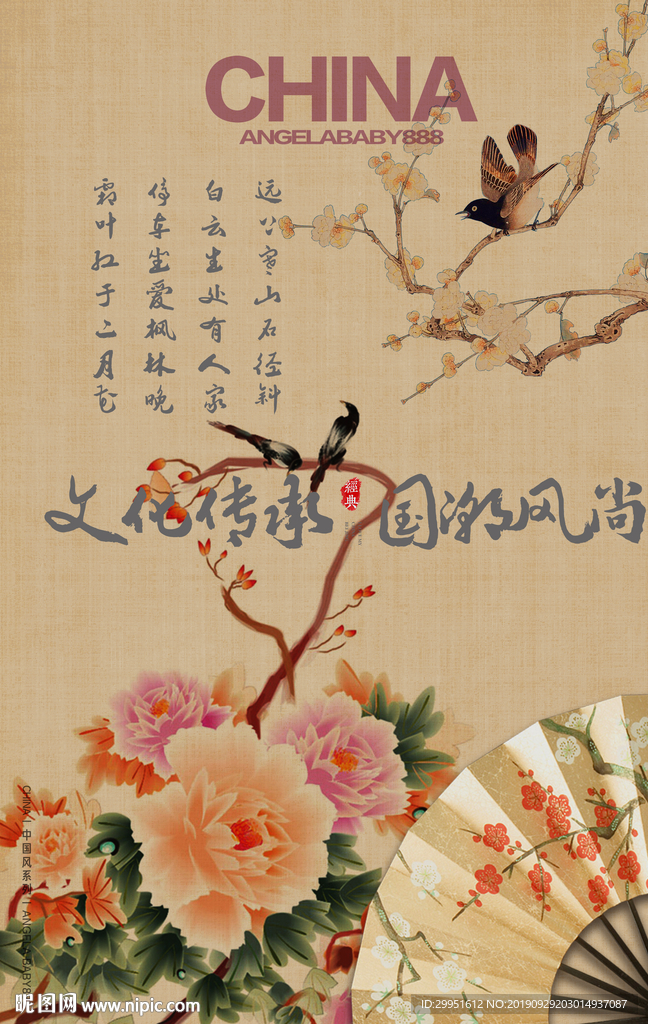 CHINA
ANGELABABY888
远上寒山石径斜
白云生处有人家
停车坐爱枫林晚
霜叶红于二月花
文化传承 經典 国潮风尚
CHINA | 中国风系列 | ANGELABABY88
昵图网 www.nipic.com
ID:29951612 NO:20190929203014937087